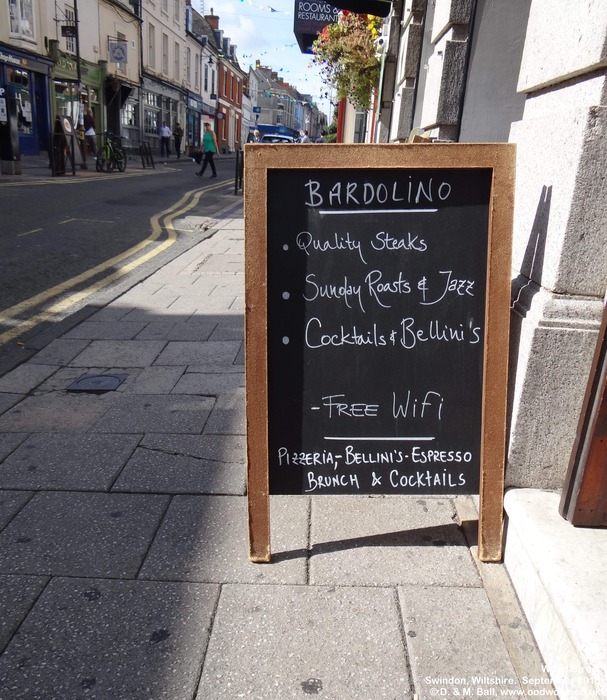 ROOMS &
RESTAURANT
BARDOLINO
• Quality Steaks
• Sunday Roasts & Jazz
• Cocktails & Bellini's
-FREE WiFi
PIZZERIA,-BELLINI'S-ESPRESSO
BRUNCH & COCKTAILS
Swindon, Wiltshire. September
© D. & M. Ball,